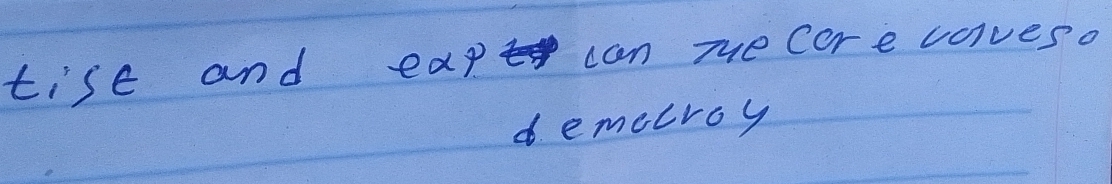 tise and exp can the core values o
democroy